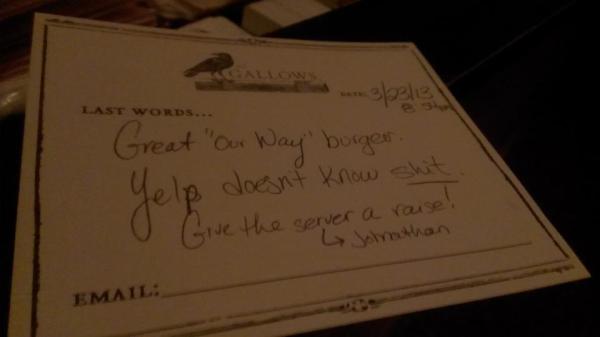 GALLOWS
DATE: 3/23/13
LAST WORDS...
Great "Our Way" burger.
Yelp doesn't know shit.
Give the server a raise!
↳ Johnathan
EMAIL: